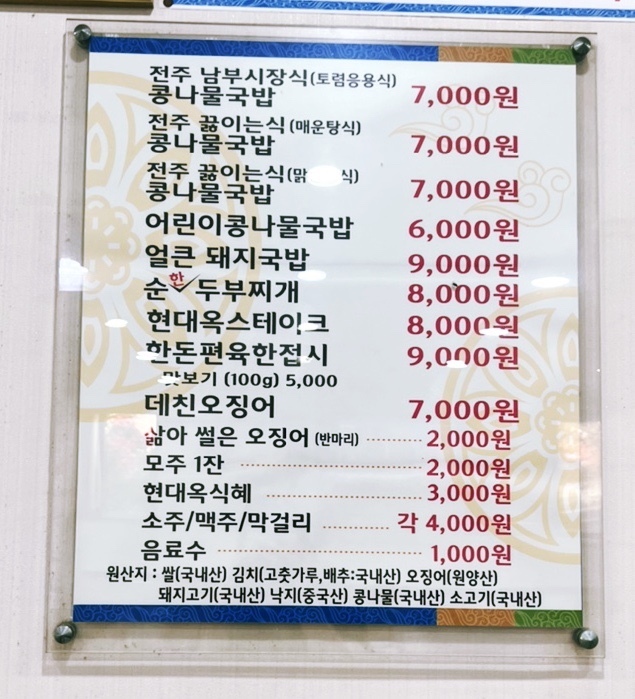 전주 남부시장식(토렴응용식)
콩나물국밥 7,000원
전주 끓이는식(매운탕식)
콩나물국밥 7,000원
전주 끓이는식(맑 식)
콩나물국밥 7,000원
어린이콩나물국밥 6,000원
얼큰 돼지국밥 9,000원
순한두부찌개 8,000원
현대옥스테이크 8,000원
한돈편육한접시 9,000원
맛보기 (100g) 5,000
데친오징어 7,000원
삶아 썰은 오징어 (반마리) 2,000원
모주 1잔 2,000원
현대옥식혜 3,000원
소주/맥주/막걸리 각 4,000원
음료수 1,000원
원산지 : 쌀(국내산) 김치(고춧가루,배추:국내산) 오징어(원양산)
돼지고기(국내산) 낙지(중국산) 콩나물(국내산) 소고기(국내산)